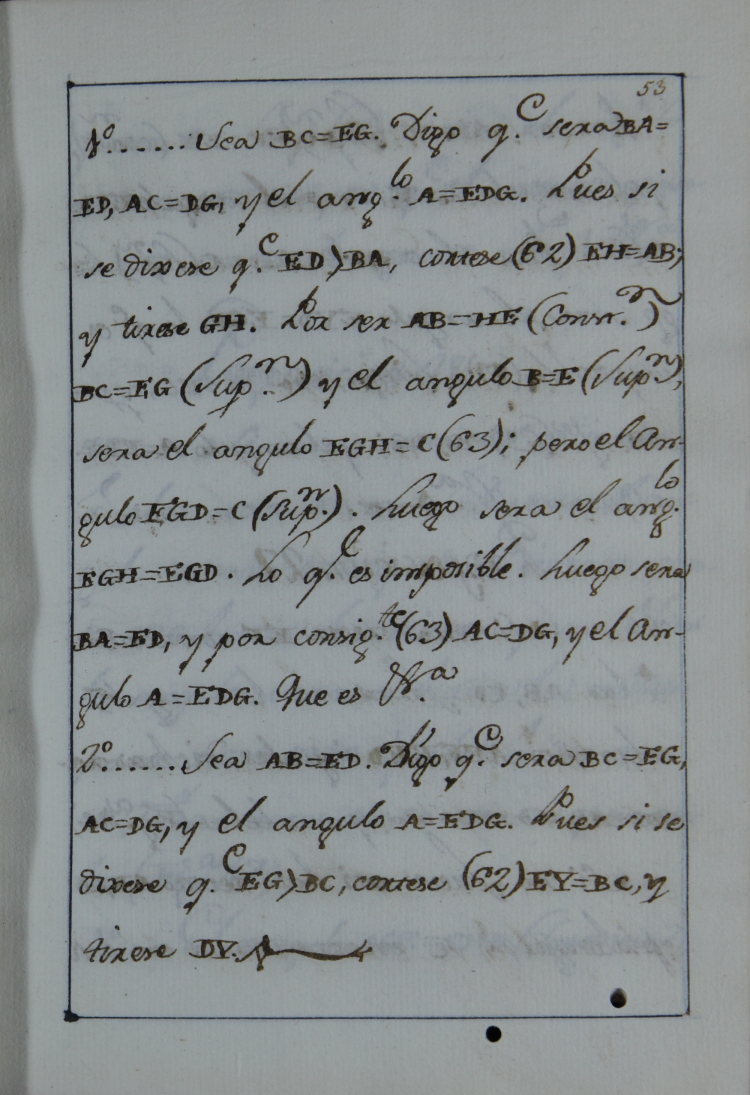 53
1º...... Sea BC=EG. Digo q.e sera BA=
ED, AC=DG, y el ang.lo A=EDG. Pues si
se dixere q.e ED>BA, cortese (62) EH=AB;
y tirese GH. Por ser AB=HE (Constr.n)
BC=EG (Sup.n) y el angulo B=E (Sup.n),
sera el angulo EGH=C (63); pero el An-
gulo EGD=C (Sup.n). Luego sera el ang.lo
EGH=EGD. Lo q.e es imposible. Luego sera
BA=ED, y por consig.te (63) AC=DG, y el An-
gulo A=EDG. Que es
2º...... Sea AB=ED. Digo q.e sera BC=EG,
AC=DG, y el angulo A=EDG. Pues si se
dixere q.e EG>BC, cortese (62) EY=BC, y
tirese DY.